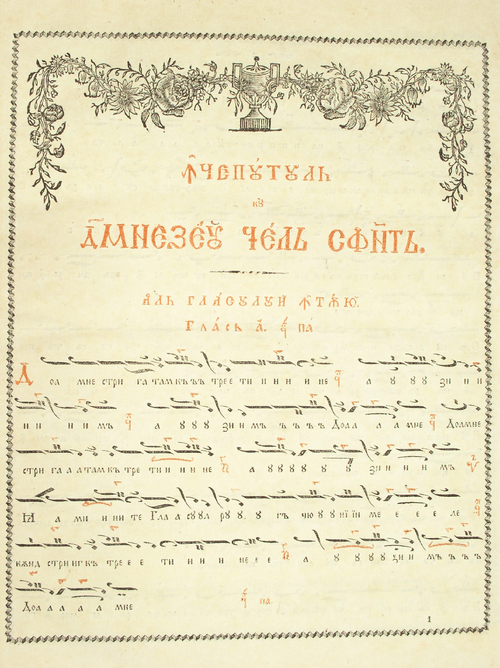 Ꙟ҆ЧЕПꙋ́ТꙋЛЬ
кꙋ
Д҃МНЕЗЕ́Ꙋ ЧЕ́ЛЬ СФН҃ТЬ.
А҆ЛЬ ГЛА́СꙋЛꙋЙ Ꙟ҆ТѪ́Ю.
ГЛА́СЬ А҃. па
Доа мне стри га тамкъ ъ тре е ти и и и и не а ꙋ ꙋ ꙋ зи и и
и и и и мъ а ꙋ ꙋ ꙋ зи имъ ъ ъ ъ Доа а а а мне Доамне
стри га а а тамкъ тре ти и и и не а ꙋ ꙋ ꙋ ꙋ ꙋ ꙋ зи и и и мъ
Ꙗ а ми и и те Гла а сꙋꙋл рꙋ ꙋ ꙋ г чю ꙋ ꙋ нїи ме е е е ле
кѫнд стри иг къ тре е е ти и и и не е е а ꙋ ꙋ ꙋ ꙋди и мъ ъ ъ ъ
Доа а а а а мне па
1